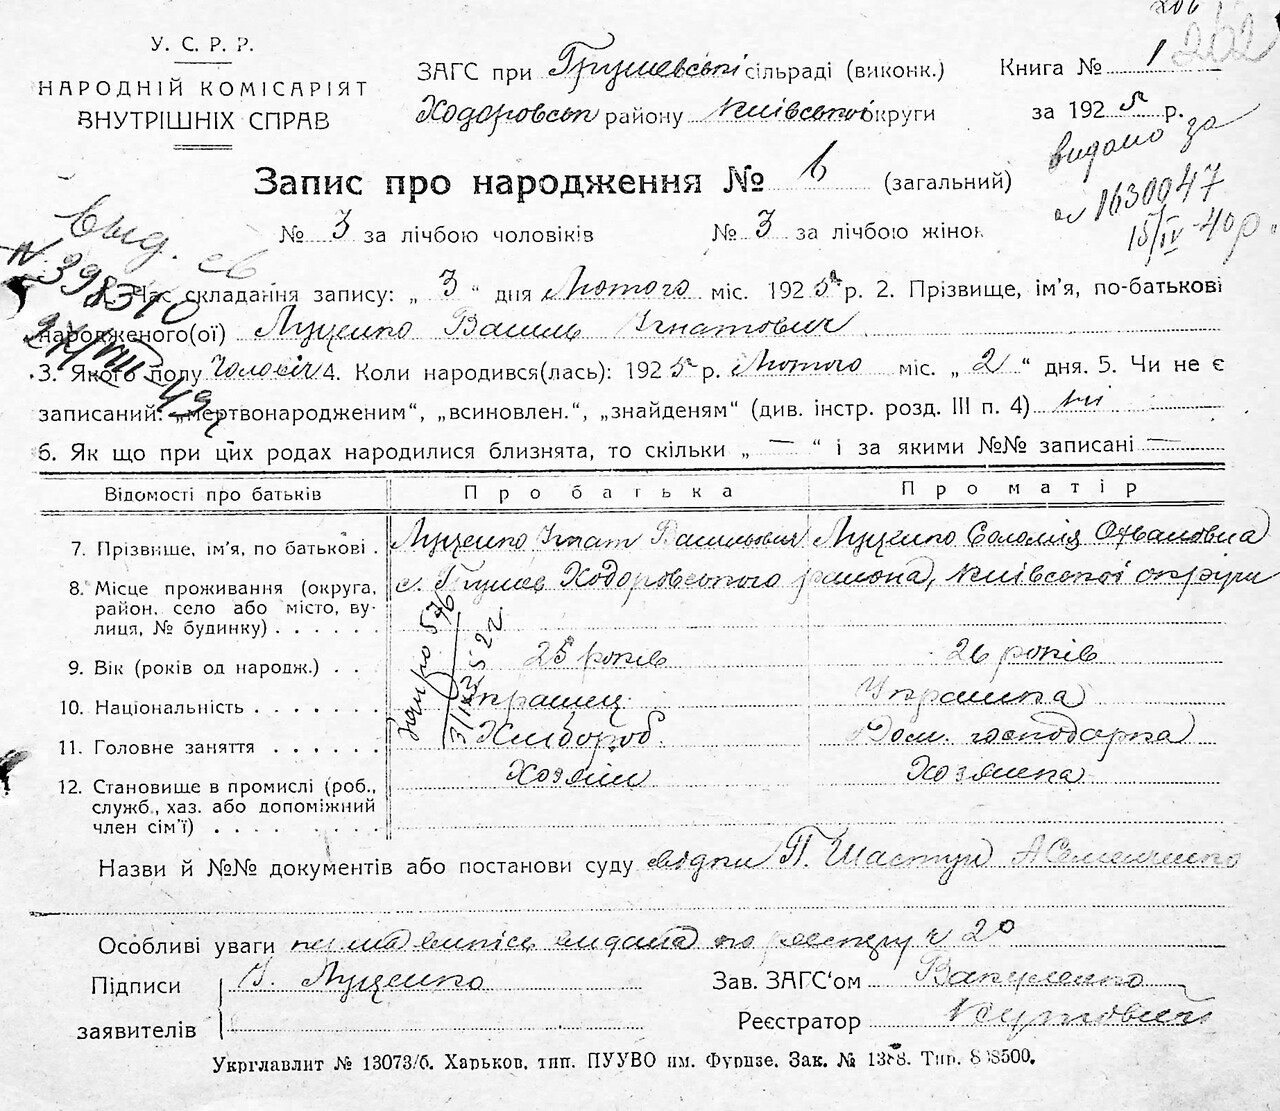 206
262
У. С. Р. Р.
НАРОДНІЙ КОМІСАРІЯТ
ВНУТРІШНІХ СПРАВ
ЗАГС при Грушевські сільраді (виконк.)
Ходоровськ району Київської округи
Книга № 1
за 1925 р.
видано за
1630947
15/IV-40р.
Запис про народження № 6 (загальний)
№ 3 за лічбою чоловіків № 3 за лічбою жінок
Выд. св
N 398310
27/VIII-49р
Час складання запису: „ 3 “ дня Лютого міс. 1925 р. 2. Прізвище, ім'я, по-батькові
народженого(ої) Луценко Василь Ігнатович
3. Якого полу Чоловіч 4. Коли народився(лась): 1925 р. Лютого міс. „ 2 “ дня. 5. Чи не є
записаний: „мертвонародженим“, „всиновлен.“, „знайденям“ (див. інстр. розд. III п. 4) ні
6. Як що при цих родах народилися близнята, то скільки „ — “ і за якими №№ записані —
Відомості про батьків Про батька Про матір
7. Прізвище, ім'я, по батькові . Луценко Ігнат Васильович Луценко Соломія
8. Місце проживання (округа, с. Грушев Ходоровського района, Київської округи
район, село або місто, ву-
лиця, № будинку) . . . . . .
9. Вік (років од народж.) . . 25 років 26 років
10. Національність . . . . . . . Українец Українка
11. Головне заняття . . . . . . Хлібороб Дом. господарка
12. Становище в промислі (роб., Хозяїн Хозяйка
служб., хаз. або допоміжний
член сім'ї) . . . . . . . . .
Назви й №№ документів або постанови суду П. Шастун А Семениченко
Особливі уваги видана по реєстру ч 20
Підписи В. Луценко Зав. ЗАГС'ом Вакуленко
заявителів Реєстратор
Укрглавлит № 13073/б. Харьков, тип. ПУУВО им. Фрунзе. Зак. № 1388. Тир. 808500.